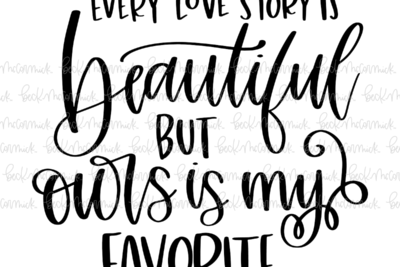 EVERY LOVE STORY IS
beautiful
BUT
ours is my
FAVORITE